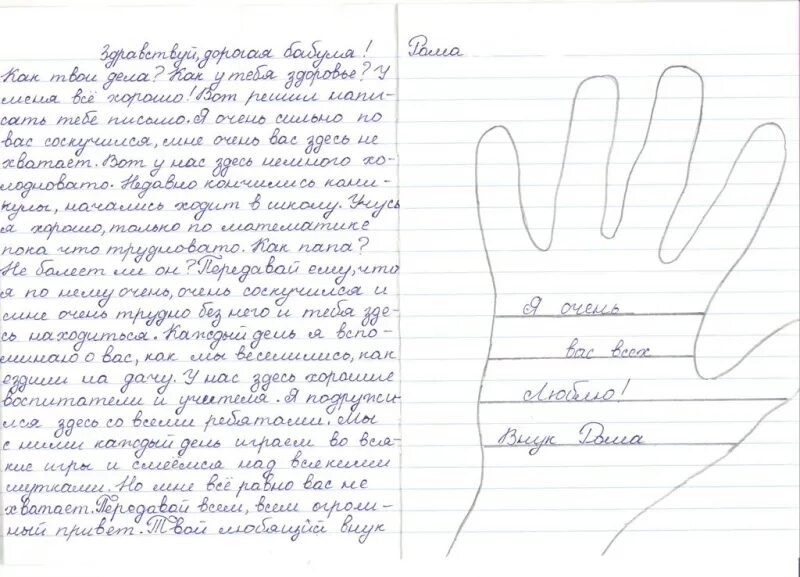 Здравствуй, дорогая бабуля!
Как твои дела? Как у тебя здоровье? У
меня всё хорошо! Вот решил напи-
сать тебе письмо. Я очень сильно по
вас соскучился, мне очень вас здесь не
хватает. Вот у нас здесь немного хо-
лодновато. Недавно кончились кани-
кулы, начались ходит в школу. Учусь
я хорошо, только по математике
пока что трудновато. Как папа?
Не болеет ли он? Передавай ему, что
я по нему очень, очень соскучился и
мне очень трудно без него и тебя зде-
сь находиться. Каждый день я вспо-
минаю о вас, как мы веселились, как
ездили на дачу. У нас здесь хорошие
воспитатели и учителя. Я подружи-
лся здесь со всеми ребятами. Мы
с ними каждый день играем во вся-
кие игры и смеёмся над всякими
шутками. Но мне всё равно вас не
хватает. Передавай всем, всем огром-
ный привет. Твой любящий внук
Рома
Я очень
вас всех
Люблю!
Внук Рома